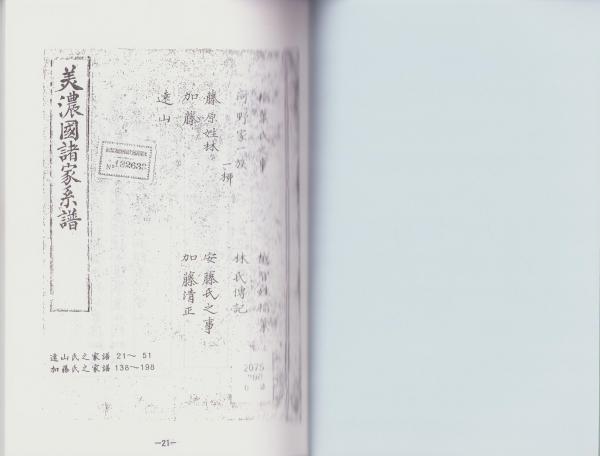 美濃國諸家系譜
河野家一族
一柳
藤原姓林
加藤
遠山
林氏傳記
安藤氏之事
加藤清正
Nº 122632
2075
遠山氏之家譜 21〜 51
加藤氏之家譜 138〜198
—21—